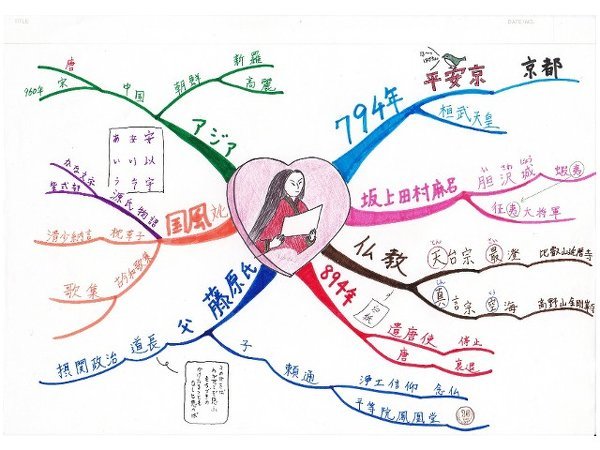 794年
平安京
京都
桓武天皇
坂上田村麻呂
胆沢城
い さわ じょう
蝦夷
征夷大将軍
仏教
天台宗
最澄
比叡山延暦寺
真言宗
空海
高野山金剛峯寺
894年
白紙
遣唐使
停止
唐
衰退
藤原氏
子
頼通
浄土信仰
念仏
平等院鳳凰堂
道長
摂関政治
国風
源氏物語
紫式部
かな文字
安以宇
あいう
枕草子
清少納言
歌集
アジア
中国
唐
宋
960年
朝鮮
新羅
高麗